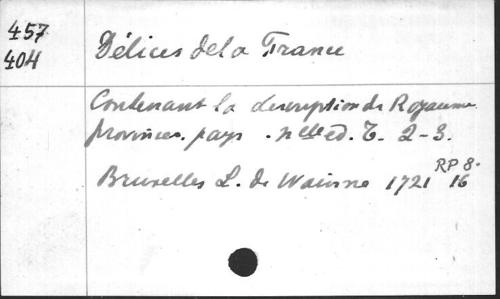 457
404
Délices de la France
Contenant la description du Royaume
provinces, pays . nlle ed. T. 2-3.
Bruxelles L. de 1721 RP 8.
16